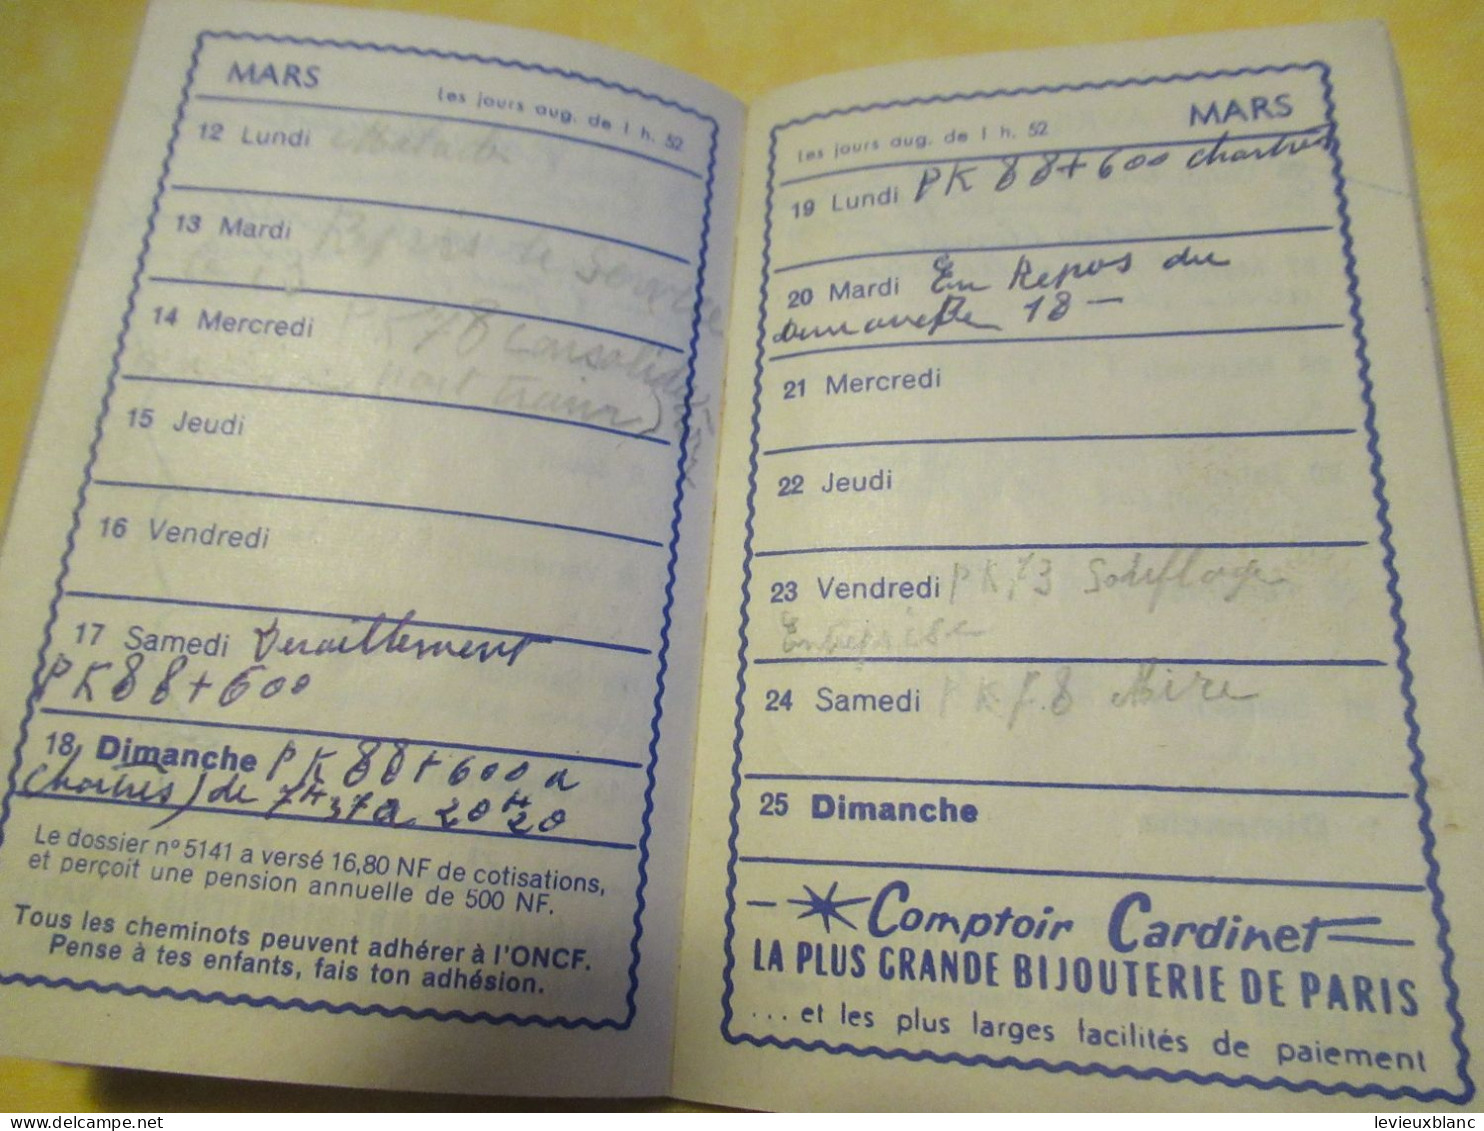 MARS
Les jours aug. de 1 h. 52
12 Lundi Malade
13 Mardi Repris de Service
le 13
14 Mercredi PK 78 Consolidation
15 Jeudi
16 Vendredi
17 Samedi Deraillement
PK 88 + 600
18 Dimanche PK 88 + 600 a
Chartres) de 7H 37 a 20H 20
Le dossier n° 5141 a versé 16,80 NF de cotisations,
et perçoit une pension annuelle de 500 NF.
Tous les cheminots peuvent adhérer à l'ONCF.
Pense à tes enfants, fais ton adhésion.
MARS
Les jours aug. de 1 h. 52
19 Lundi PK 88 + 600 Chartres
20 Mardi En Repos du
Dimanche 18 —
21 Mercredi
22 Jeudi
23 Vendredi PK 73 Soufflage
Entreprise
24 Samedi PK 78
25 Dimanche
Comptoir Cardinet
LA PLUS GRANDE BIJOUTERIE DE PARIS
... et les plus larges facilités de paiement
levieuxblanc